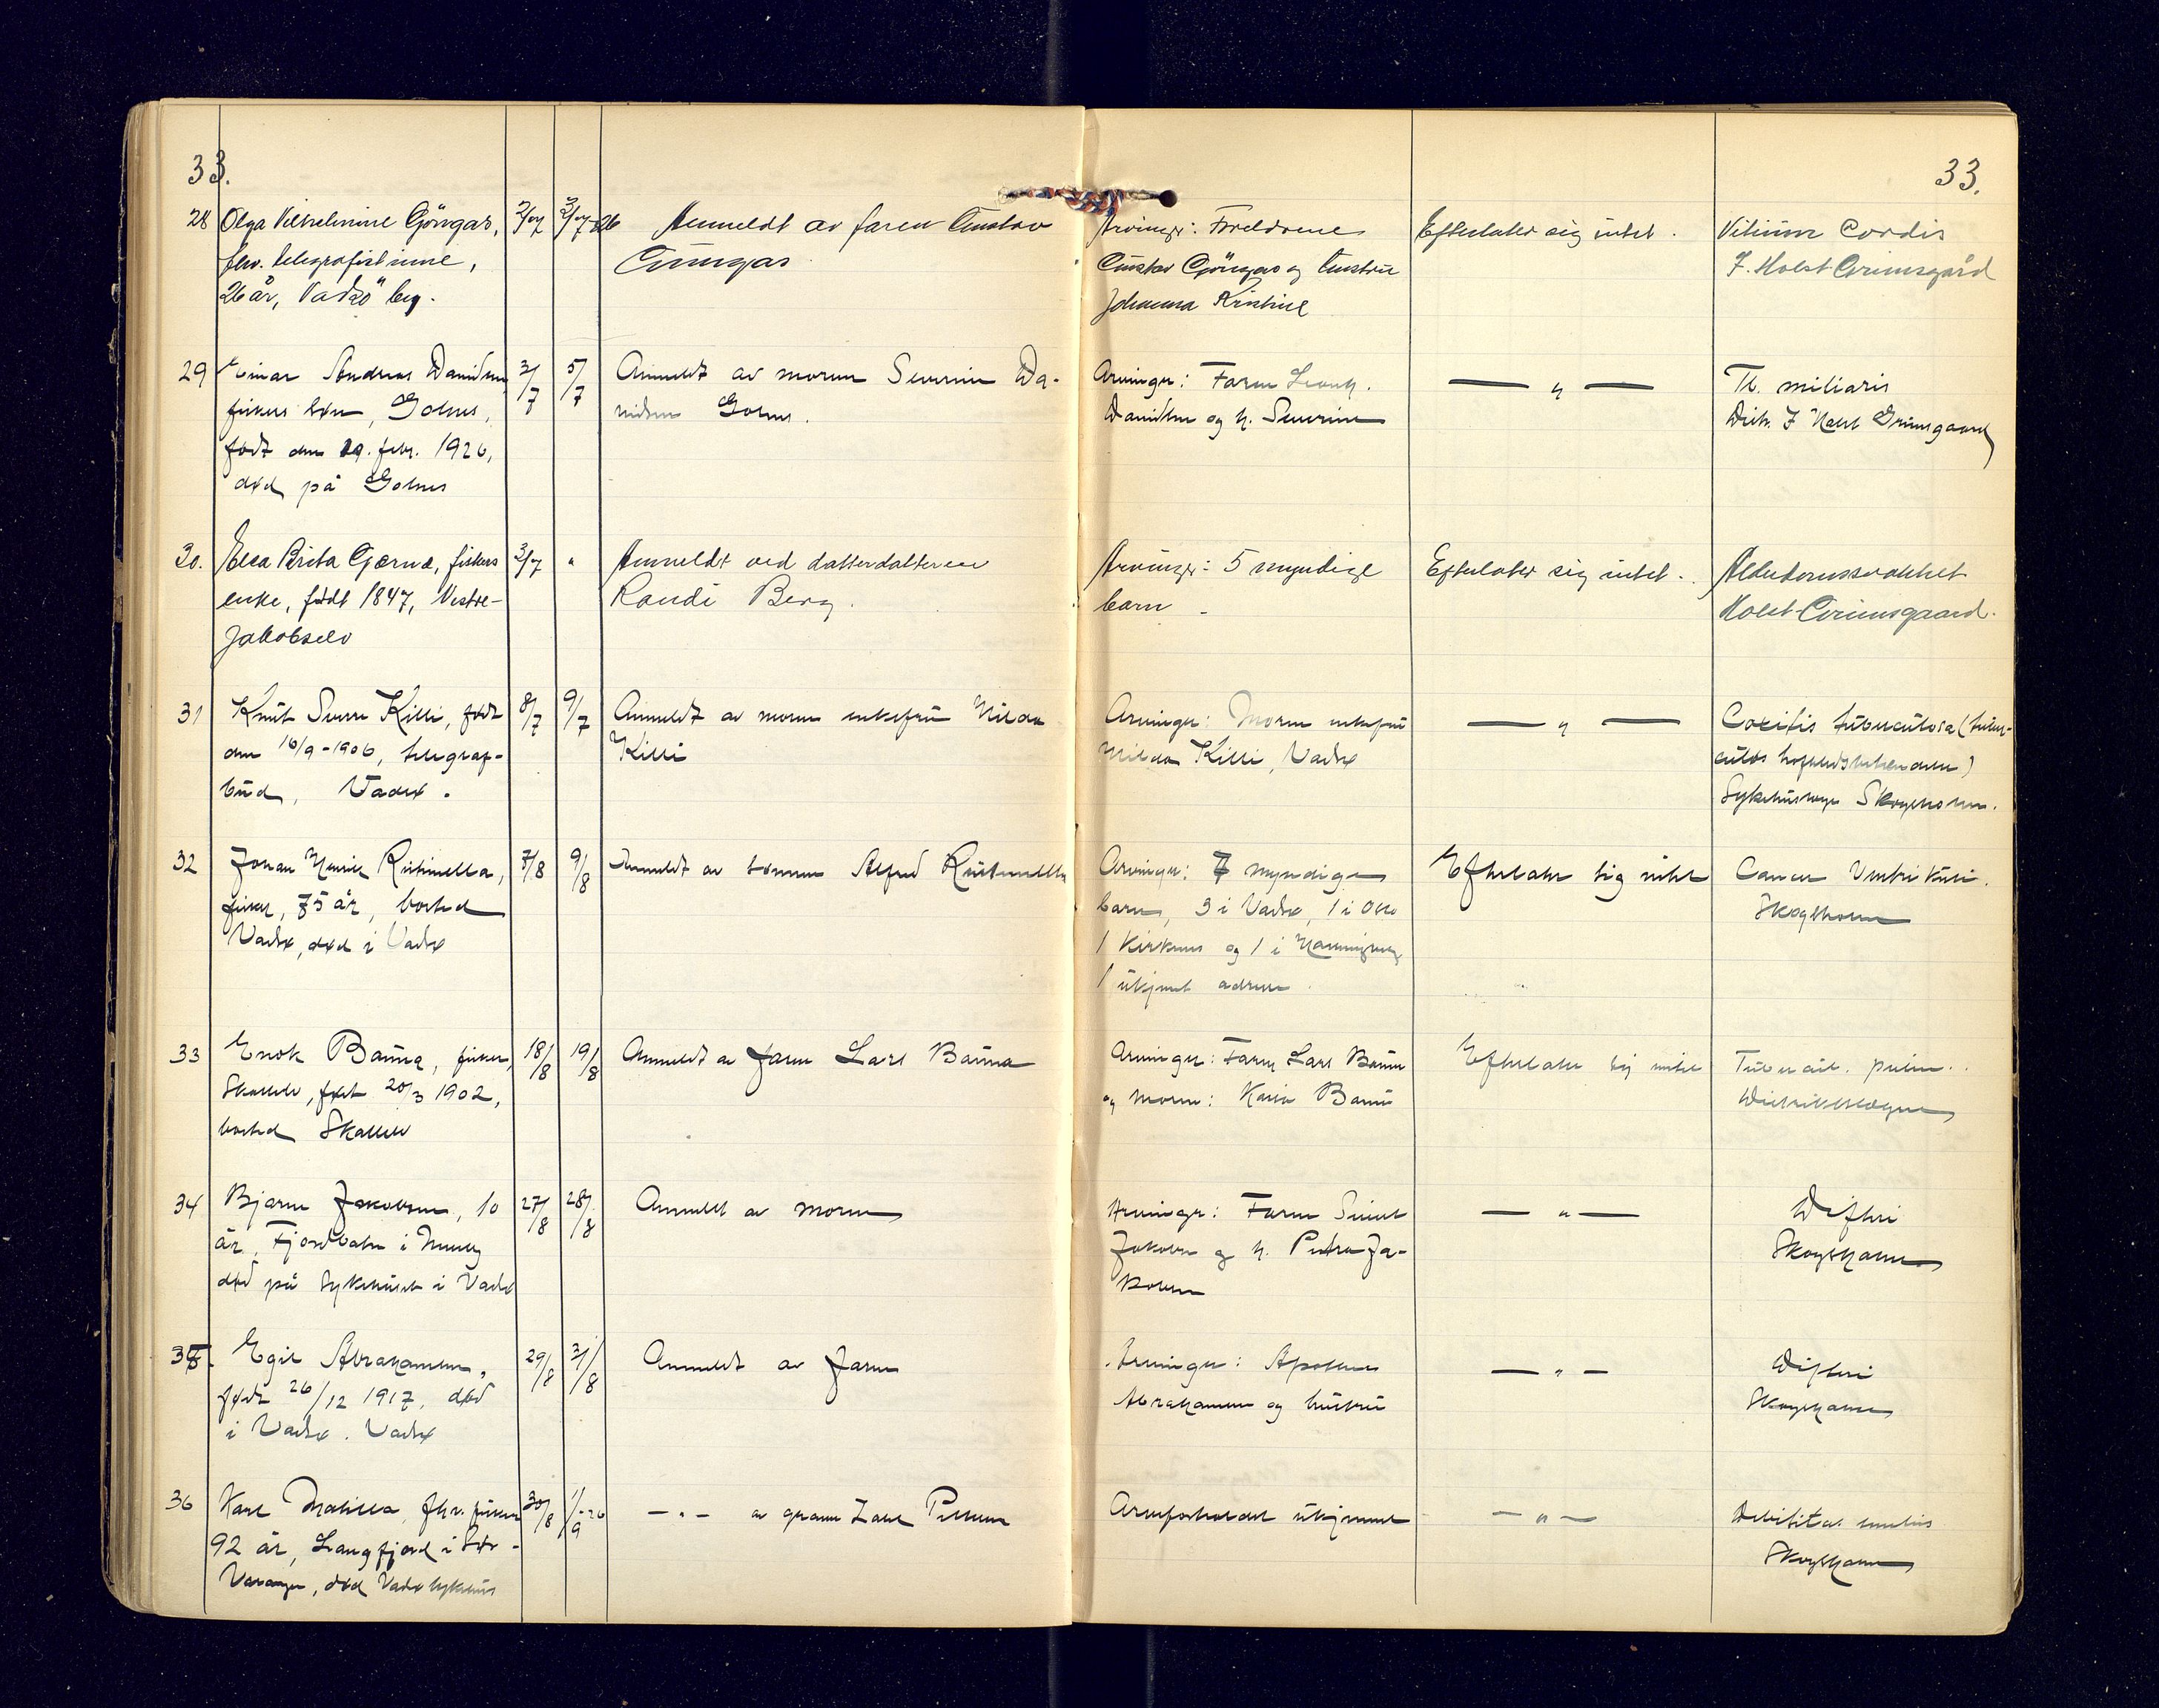 33.
33.
28 Olga Vilhelmine Göngas, 2/7 3/7-26 Anmeldt av faren Gustav Arvinger: Foreldrene Efterlater sig intet. Vitium Cordis
fhv. telegrafistinne, Gungas Gustav Göngas og hustru J. Holst Grimsgård
26 år, Vadsö by. Johanna Kristine
29 Einar Andreas Danielsen 3/7 5/7 Anmeldt av moren Severine Da- Arvinger: Faren — „ — Tb. miliaris
fiskers sön, Golnes, nielsen Golnes. Danielsen og h. Severine Distr. J Holst Grimsgaard
født den 19. febr. 1926,
død på Golnes
30. Elea Brita Gærnæ, fiskers 3/7 " Anmeldt ved datterdatteren Arvinger: 5 myndige Efterlater sig intet. Alderdomssvakhet
enke, född 1847, Vestre- Randi Berg. barn - Holst-Grimsgaard.
Jakobselv
31 Knut Sverre Killi, født 8/7 9/7 Anmeldt av moren enkefru Hilda Arvinger: Moren enkefru — „ — Coxitis tuberculosa (tuber-
den 16/9-1906, telegraf- Killi Hilda Killi, Vadsø culøs hofteledsbetendelse)
bud, Vadsø. Sykehuslege Skogsholm.
32 Johan Henrik Ristinella, 7/8 9/8 Anmeldt av sønnen Alfred Arvinger: 7 myndige Efterlater sig intet Cancer Ventrikuli.
fisker, 75 år, bosted barn, 3 i Vadsø, 1 i Oslo Skogsholm
Vadsø, død i Vadsø 1 Kirkenes og 1 i Honningsvåg
1 ukjent adresse.
33 Enok Banna, fisker, 18/8 19/8 Anmeldt av faren Lars Banna Arvinger: Faren Lars Banna Efterlater sig intet Tubercul. pulm.
Skallelv, født 20/3 1902, og moren: Kaisa Banna Distriktslegen
bosted Skallelv
34 Bjarne Jakobsen, 10 27/8 28/8 Anmeldt av moren Arvinger: Faren — „ — Difteri
år, i død på sykehuset i Vadsø Jakobsen og h. Petra Ja- Skogsholm
kobsen
35. Egil Abrahamsen, 29/8 31/8 Anmeldt av faren Arvinger: Apoteker — „ — Difteri
født 26/12 1917, død Abrahamsen og hustru Skogsholm
i Vadsø. Vadsø
36 Karl Matilla, fhv. fisker 30/8 1/9-26 — „ — av Arveforholdet ukjennt — „ — Debilitas senilis
92 år, Langfjord i Sør- Skogsholm
Varanger, død Vadsø sykehus